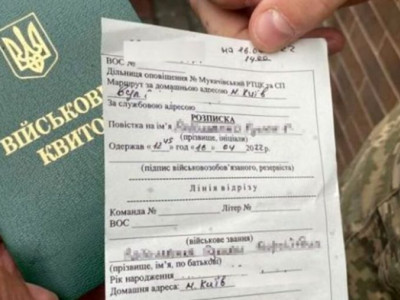 ВІЙСЬКОВ
КВИТО
на 18.0
14.00
ВОС
Дільниця оповіщення № Мукачівський РТЦК та СП
Маршрут за домашньою адресою м. Київ
За службовою адресою
РОЗПИСКА
Повістка на ім'я
(прізвище, ініціали)
Одержав «12 45» год «18» 04 2022 р.
(підпис військовозобов'язаного, резервіста)
Лінія відрізу
Команда № Літер №
ВОС
(військове звання)
(прізвище, ім'я, по батькові)
Рік народження
Домашня адреса: м. Київ